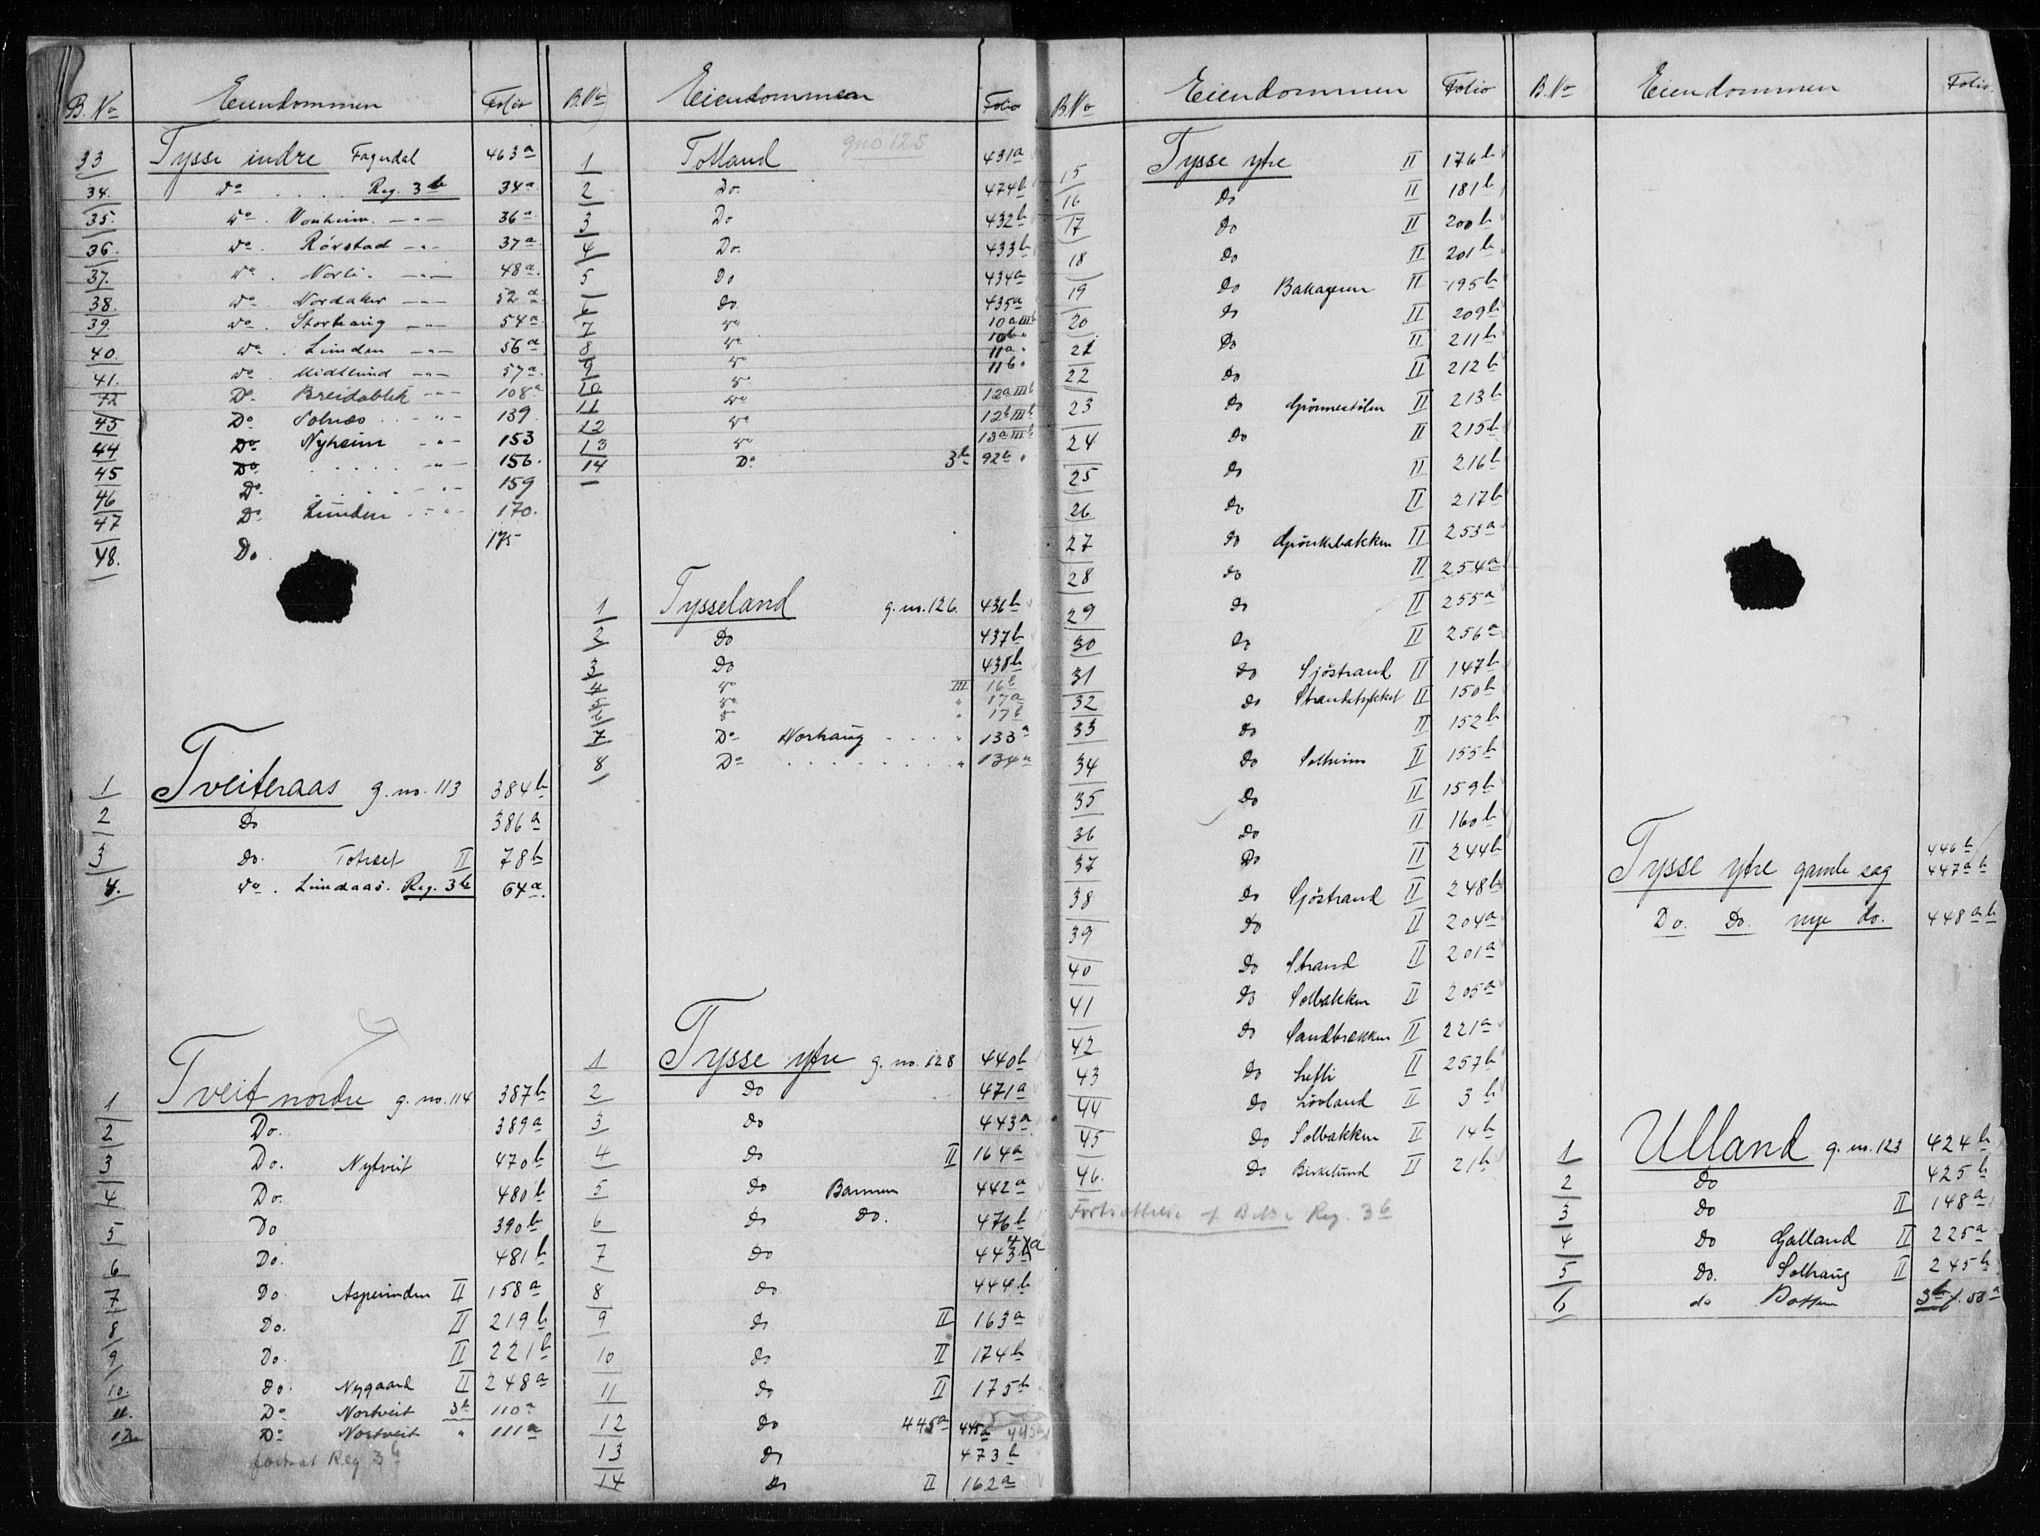 B. No Eiendommen Folio
33 Tysse indre Fagerdal 463a
34. do . . . Reg. 3b 34a
35. do . Vonheim. —"— 36a
36. do . Rörstad —"— 37a
37. do . Norli. —"— 48a.
38. do . Nordaker —"— 52a
39 do . Storhaug —"— 54a.
40. do . Linden —"— 56a
41. do . Midtlund —"— 57a.
42 Do. Breidablik —"— 108a
43 Do Solnæs . . —"— 139.
44 Do Nyheim —"— 153
45 Do . . . . . —"— 156.
46 Do. . . . . . —"— 159
47 Do. Linden . —"— 170.
48. Do. 175
1 Tveiteraas g. no. 113 384b
2 Do 386a
3 Do. II 78b
4. do . Lindaas. Reg. 3b 64a.
1 Tveit nordre g. no. 114 387b
2 Do. 389a
3 Do. Nytveit 470b
4 Do. 480b
5 Do 390b
6 Do. 481b
7 Do. Asperinden II 158a
8 Do. II 219b
9 Do. II 221b
10. Do. Nygaard II 248a
11. Do Nortveit 3b 110a
12. Do Nortveit " 111a
fortsat Reg 3b
B.No Eiendommen Folio
1 Totland gno 125 431a
2 Do. 474b
3 Do 432b
4 Do. 433b
5 Do 434a
6 Do. 435a
7 do 10a IIIb
8 do 10b "
9 do 11a "
10 do 11b "
11 do 12a IIIb
12 do 12b IIIb
13 do 13a IIIb
14 Do. 3b 92b "
1 Tysseland g. no. 126. 436b
2 Do 437b
3 Do 438b
4 do III 16b
5 do " 17a
6 do " 17b
7 Do Norhaug . . . . " 133a
8 Do . . . . . . . . " 134a
1 Tysse ytre g. no. 128 440b
2 Do 471a
3 Do 443a
4 Do II 164a
5 Do Barmen 442a
6 Do Do. 476b
7 Do 443b
8 Do 444b
9 Do II 163a
10 Do II 174b
11 Do II 175b
12 Do 445a 445a
13 Do 473b
14 Do II 162a
B.No Eiendommen Folio
15 Tysse ytre II 176b
16 Do II 181b
17 Do II 200b
18 Do II 201b
19 Do Bakkageren II 195b
20 Do II 209b
21 Do II 211b
22 Do II 212b
23 Do II 213b
24 Do II 215b
25 Do II 216b
26 Do II 217b
27 Do II 253a
28 Do II 254a
29 Do II 255a
30 Do II 256a
31 Do Sjöstrand II 147b
32 Do Strandstykket II 150b
33 Do II 152b
34 Do Solheim II 155b
35 Do II 159b
36 Do II 160b
37 Do II 244b
38 Do Sjöstrand II 248b
39 Do II 204a
40 Do Strand II 201a
41 Do Solbakken II 205a
42 Do Sandbrekken II 221a
43 Do II 257b
44 Do Lövland II 3b
45 Do Solbakken II 14b
46. Do Birkelund II 21b
Fortsættelse af Dette i Reg. 3b
B.No Eiendommen Folio.
446b
Tysse ytre gamle sag 447ab
Do. Do. nye do. 448ab
1 Ulland g. no. 123 424b
2 Do 425b
3 Do II 148a
4 Do Galland II 225a
5 Do. Solhaug II 245b
6 do 3b f. 58a